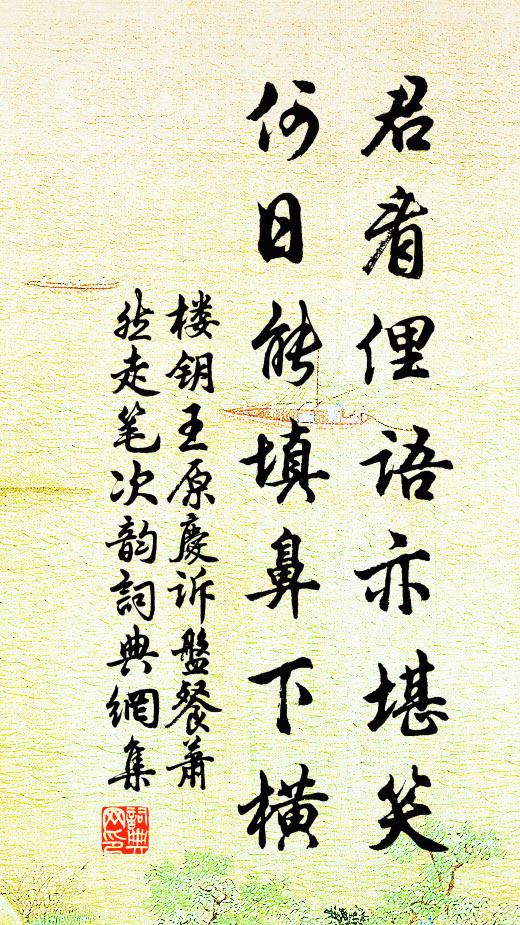 君看俚语亦堪笑
何日能填鼻下横
楼钥王原庆诉盘餐萧
然走笔次韵詞典網集
詞典
网印